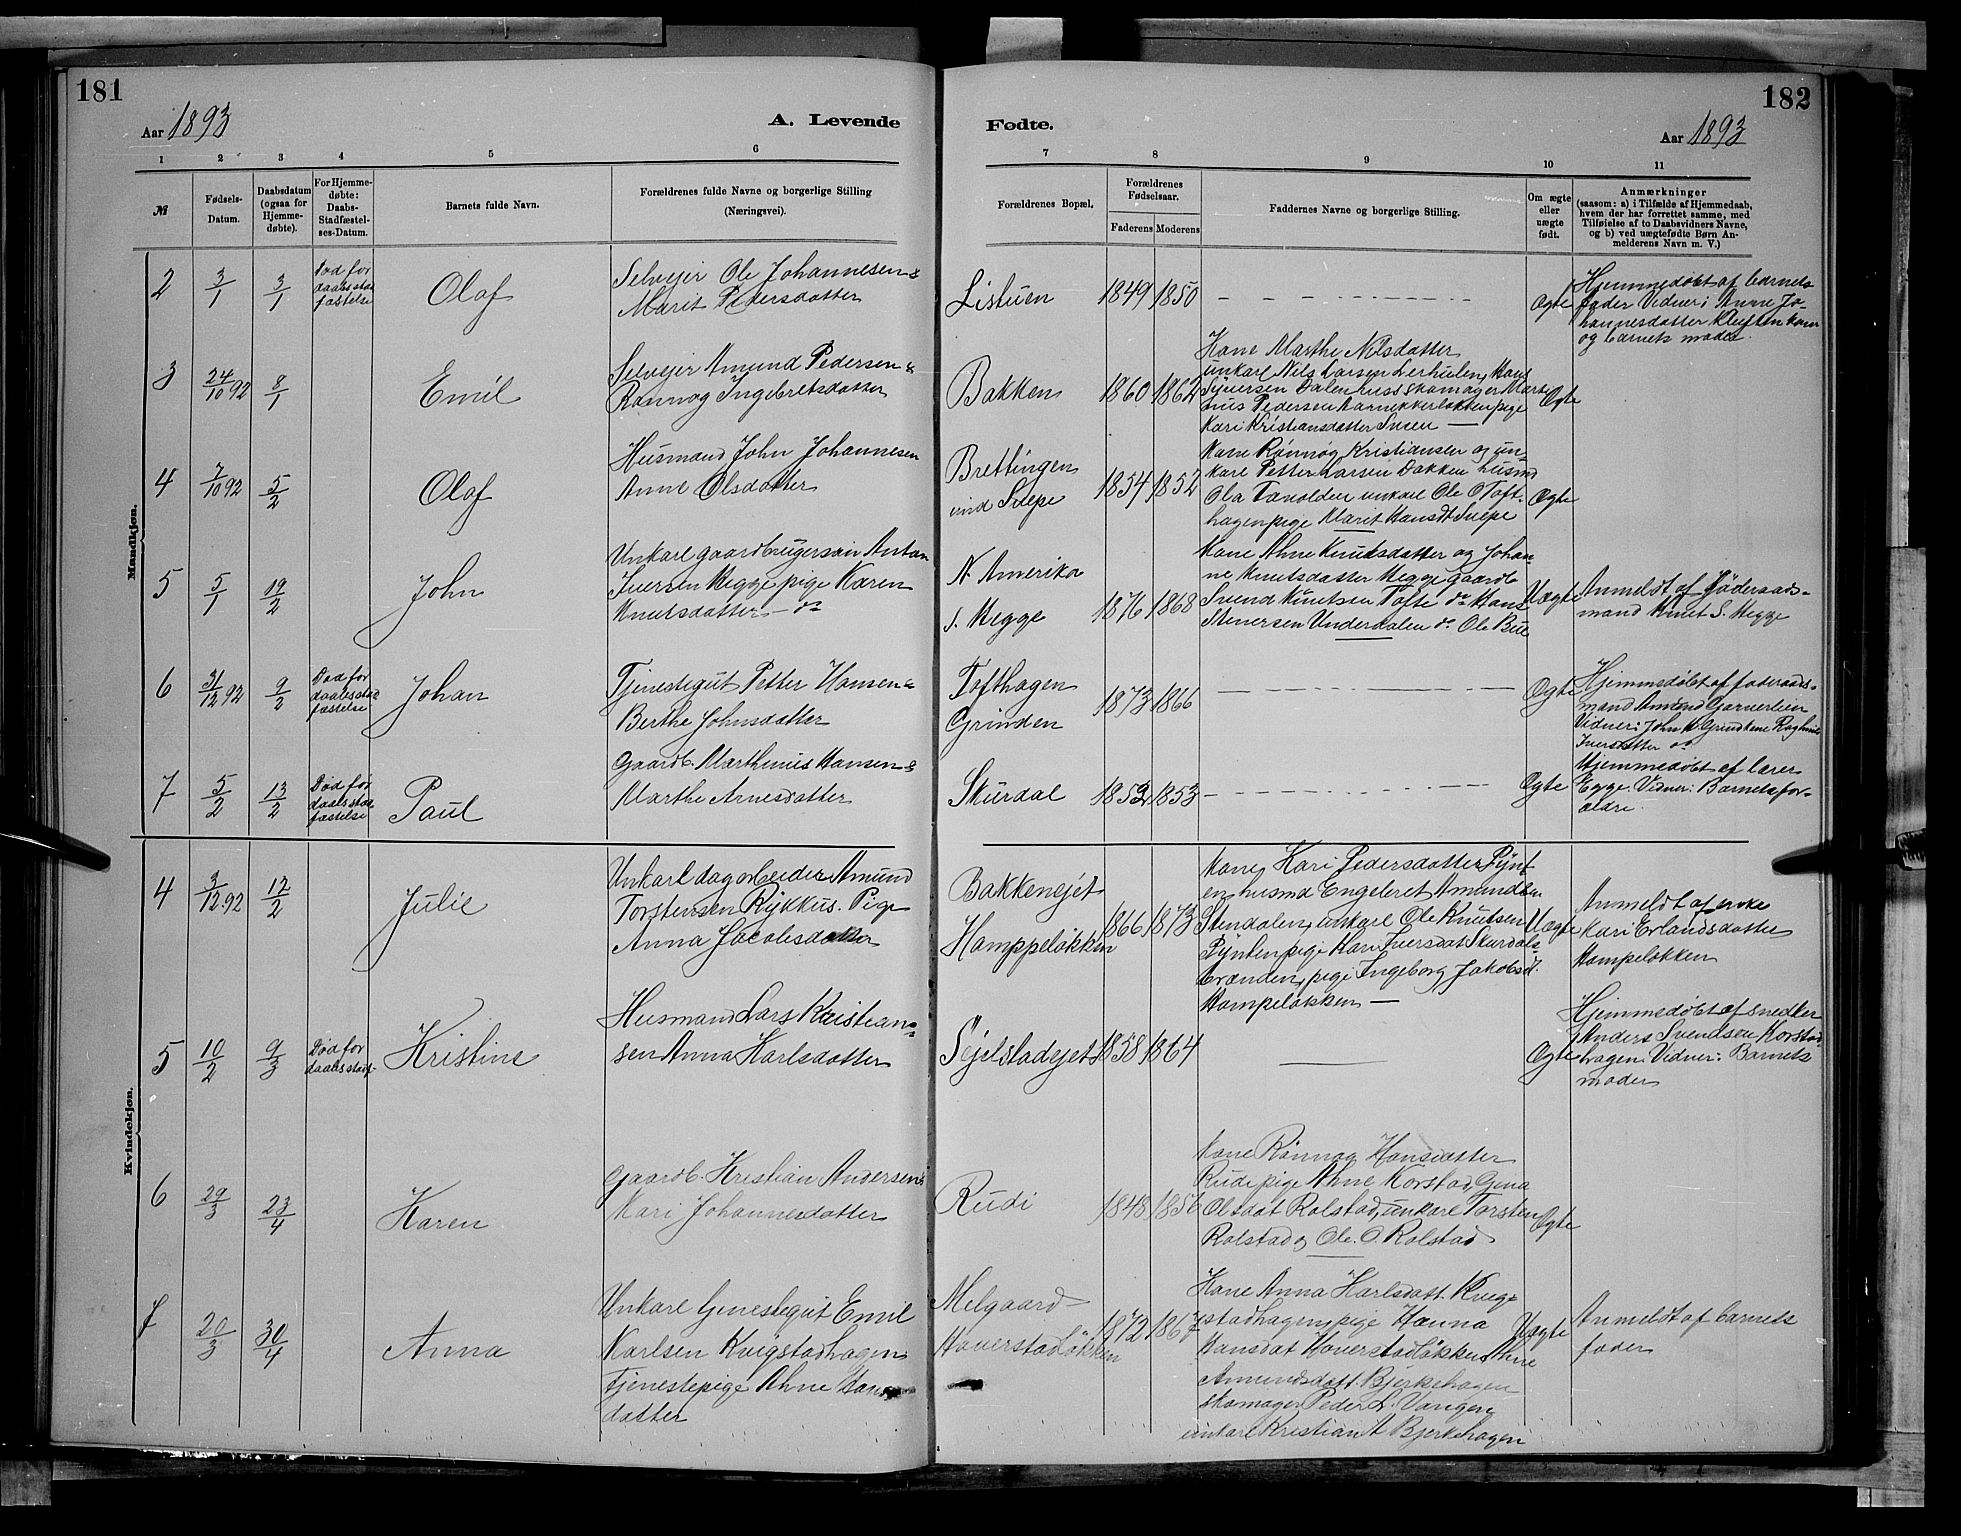 181
Aar 1893
A. Levende
1 2 3 4 5 6
№
Fødsels-Datum.
Daabsdatum (ogsaa for Hjemme-døbte).
For Hjemme-døbte: Daabs-Stadfæstel-ses-Datum.
Barnets fulde Navn.
Forældrenes fulde Navne og borgerlige Stilling (Næringsvei).
Mandkjøn.
2 3/1 3/1 Død før daabsstad fæstelse Olaf
Selveier Ole Johannesen &
Marit Pedersdatter
3 24/10 92 8/1 Emil
Selveier Amund Pedersen &
Rønnog Ingebretsdatter
4 7/10 92 5/2 Olaf
Husmand John Johannesen
Anne Olsdatter
5 5/1 19/2 John
Unkarl gaardbrugersøn Anton
Iversen Hegge pige Karen
Knutsdatter - do
6 31/12 92 9/2 Død før daabsstad fæstelse Johan
Tjenestegut Petter Hansen &
Berthe Johnsdatter
7 5/2 13/2 Død før daabsstad fæstelse Paul
Gaardb. Marthinus Hansen &
Marthe Arnesdatter
Kvindekjøn.
4 3/12 92 12/2 Julie
Unkarl dagarbeider Amund
Torstensen Rykkus. Pige
Anna Jacobsdatter
5 10/2 9/3 Død før daabsstadf. Kristine
Husmand Lars Kristian-
sen Anna Karlsdatter
6 29/3 23/4 Karen
Gaardb. Kristian Andersen &
Kari Johannesdatter
7 20/3 30/4 Anna
Unkarl Tjenestegut Emil
Karlsen Kvigstadhagen
Tjenestepige Ahne Hans
datter
182
Fødte.
Aar 1893
7 8 9 10 11
Forældrenes Bopæl.
Forældrenes Fødselsaar.
Faderens Moderens
Faddernes Navne og borgerlige Stilling.
Om ægte eller uægte født.
Anmærkninger
(saasom: a) i Tilfælde af Hjemmedaab,
hvem der har forrettet samme, med
Tilføielse af to Daabsvidners Navne,
og b) ved uægtefødte Børn An-
melderens Navn m. V.)
Listuen 1849 1850 Ægte
Hjemmedøbt af barnets
fader Vidner: Anne Jo-
hannesdatter Kluften kone
og barnets moder.
Bakken 1860 1862
Kone Marthe Nilsdatter
unkarl Nils Larsen Lerhulen, Hans
Syversen Dalen huss skomager Marti
nus Pedersen pige
Kari Kristiansdatter Sveen
Ægte
Brettingen
und Svepe
1854 1852
Kone Rønnog Kristiansen og un-
karl Petter Larsen Bakken husmd
Ola unkarl Ole O Toft-
hagen pige Marit Hansdt Svepe
Ægte
N. Amerika
s. Hegge
1876 1868
Kone Ahne Knutsdatter og Johan
ne Knutsdatter Hegge gaardb
Svend Knutsen Tofte do Hans
Stenersen Underdalen do Ole Bue
Uægte
Anmeldt af Føderaads-
mand Knut S. Hegge
Tofthagen
Grinden
1873 1866 Ægte
Hjemmedøbt af føderaads-
mand Amund
Vidner: John
Iversdatter do
Skurdal 1852 1853 Ægte
Hjemmedøbt af lærer
Egge. Vidner: Barnets for-
ældre.
Bakkenejet
Hamppeløkken
1866 1873
Kone Kari Pedersdatter Pynt
en husmd Engebret Amundsen
Stendalen, unkarl Ole Knutsen
Pynten pige Kari Iversdat Skurdals-
brænden, pige Ingeborg Jakobsd.
Hampeløkken
Uægte
Anmeldt af enke
Kari Erlandsdatter
Hampeløkken
Sejelstadejet 1858 1864 Ægte
Hjemmedøbt af snedker
Anders Svendsen Korstad
hagen. Vidner: Barnets
moder
Rudi 1848 1856
Kone Rønnog Hansdatter
Rudi pige Ahne Korstad, Gina
Olsdat Rolstad, unkarl Torsten
Rolstad og Ole. O. Rolstad
Ægte
Melgaard
Haverstadløkken
1872 1867
Kone Anna Karlsdatt. Kvig
stadhagen, pige Hanna
Hansdat Haverstadløkken Ahne
Amundsdatt. Bjerkehagen
skomager Peder L. Vangen
unkarl Kristian A Bjerkehagen
Uægte
Anmeldt af barnets
fader